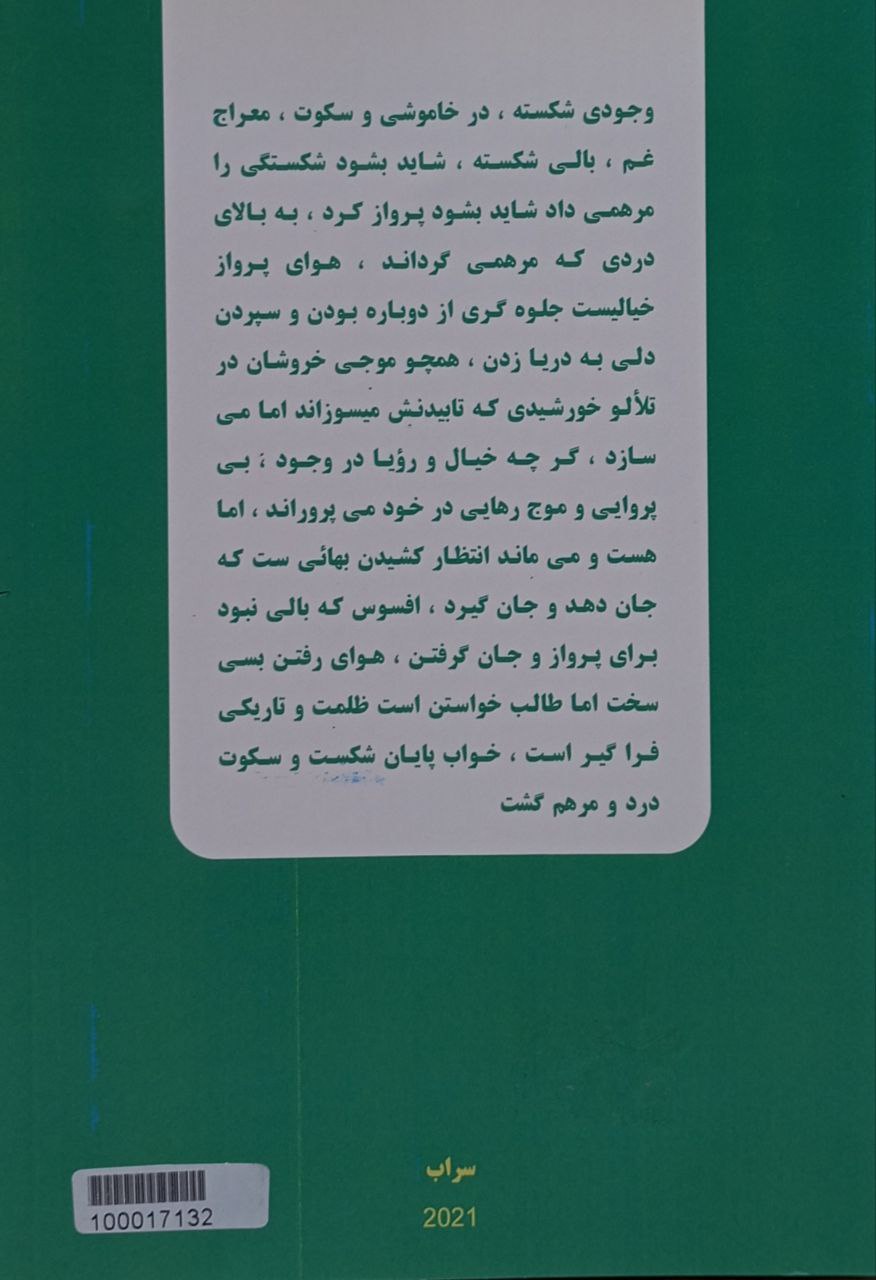 وجودی شکسته ، در خاموشی و سکوت ، معراج
غم ، بالی شکسته ، شاید بشود شکستگی را
مرهمی داد شاید بشود پرواز کرد ، به بالای
دردی که مرهمی گرداند ، هوای پرواز
خیالیست جلوه گری از دوباره بودن و سپردن
دلی به دریا زدن ، همچو موجی خروشان در
تلألو خورشیدی که تابیدنش میسوزاند اما می
سازد ، گر چه خیال و رؤیا در وجود ، بی
پروایی و موج رهایی در خود می پروراند ، اما
هست و می ماند انتظار کشیدن بهائی ست که
جان دهد و جان گیرد ، افسوس که بالی نبود
برای پرواز و جان گرفتن ، هوای رفتن بسی
سخت اما طالب خواستن است ظلمت و تاریکی
فرا گیر است ، خواب پایان شکست و سکوت
درد و مرهم گشت
سراب
2021
100017132